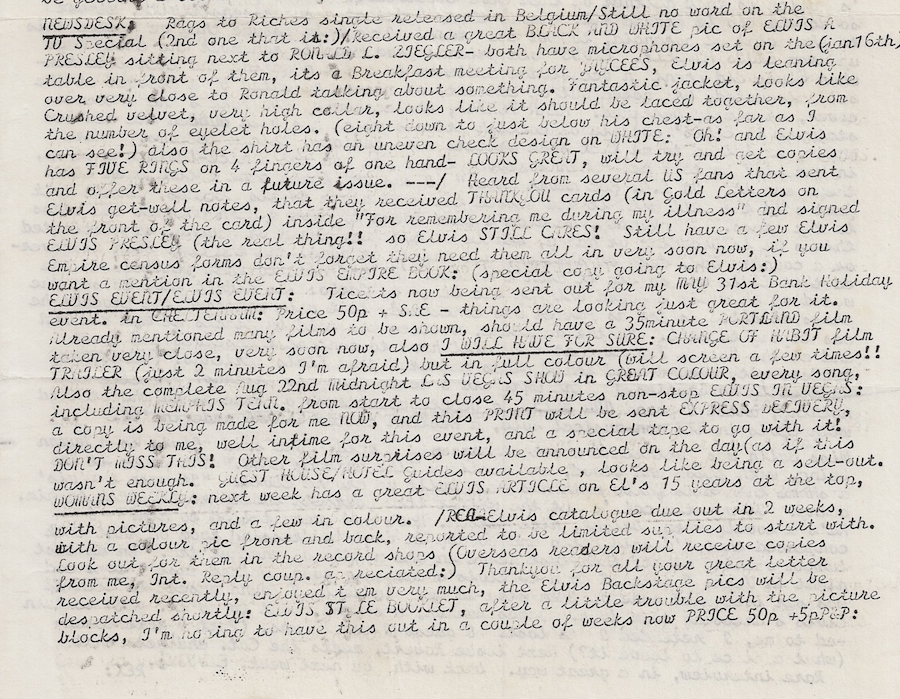 NEWSDESK: Rags to Riches single released in Belgium/Still no word on the
TV Special (2nd one that is:)/Received a great BLACK AND WHITE pic of ELVIS A
PRESLEY sitting next to RONALD L. ZIEGLER- both have microphones set on the (jan16th)
table in front of them, its a Breakfast meeting for JAYCEES, Elvis is leaning
over very close to Ronald talking about something. Fantastic jacket, looks like
Crushed velvet, very high collar, looks like it should be laced together, from
the number of eyelet holes. (eight down to just below his chest-as far as I
can see!) also the shirt has an uneven check design on WHITE: Oh! and Elvis
has FIVE RINGS on 4 fingers of one hand- LOOKS GREAT, will try and get copies
and offer these in a future issue. ---/ Heard from several US fans that sent
Elvis get-well notes, that they received THANKYOU cards (in Gold Letters on
the front of the card) inside "For remembering me during my illness" and signed
ELVIS PRESLEY (the real thing!! so Elvis STILL CARES! Still have a few Elvis
Empire census forms don't forget they need them all in very soon now, if you
want a mention in the ELVIS EMPIRE BOOK: (special copy going to Elvis:)
ELVIS EVENT/ELVIS EVENT: Tickets now being sent out for my MAY 31st Bank Holiday
event. in CHELTENHAM: Price 50p + SAE - things are looking just great for it.
Already mentioned many films to be shown, should have a 35minute PORTLAND film
taken very close, very soon now, also I WILL HAVE FOR SURE: CHANGE OF HABIT film
TRAILER (just 2 minutes I'm afraid) but in full colour (will screen a few times!!
Also the complete Aug 22nd Midnight LAS VEGAS SHOW in GREAT COLOUR, every song,
including MEMPHIS TENN. from start to close 45 minutes non-stop ELVIS IN VEGAS:
a copy is being made for me NOW, and this PRINT will be sent EXPRESS DELIVERY,
directly to me, well intime for this event, and a special tape to go with it!
DON'T MISS THIS! Other film surprises will be announced on the day(as if this
wasn't enough. GUEST HOUSE/HOTEL Guides available , looks like being a sell-out.
WOMANS WEEKLY: next week has a great ELVIS ARTICLE on El's 15 years at the top,
with pictures, and a few in colour. /RCA-Elvis catalogue due out in 2 weeks,
with a colour pic front and back, reported to be limited sup lies to start with.
Look out for them in the record shops (Overseas readers will receive copies
from me, Int. Reply coup. ap reciated:) Thankyou for all your great letter
received recently, enjoyed t em very much, the Elvis Backstage pics will be
despatched shortly: ELVIS STYLE BOOKLET, after a little trouble with the picture
blocks, I'm hoping to have this out in a couple of weeks now PRICE 50p +5pP&P: